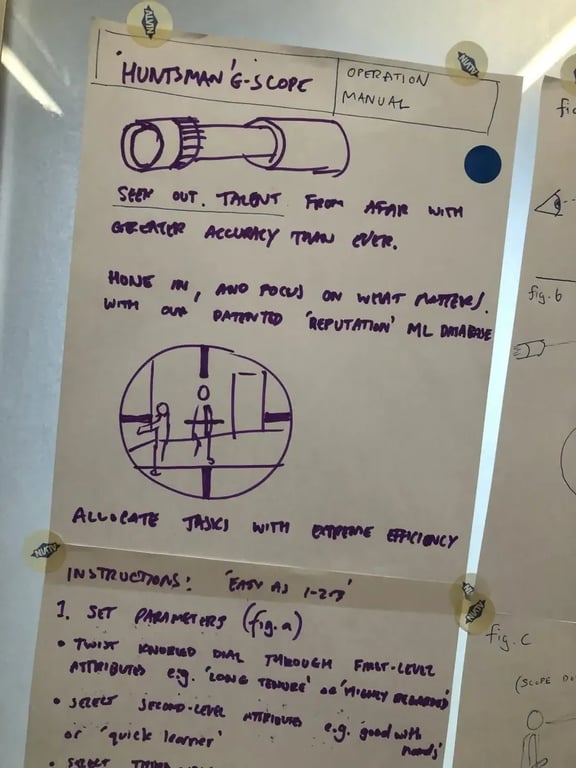 'HUNTSMAN' G-SCOPE
OPERATION
MANUAL
SEEK OUT. TALENT FROM AFAR WITH
GREATER ACCURACY THAN EVER.
HONE IN, AND FOCUS ON WHAT MATTERS.
WITH OUR PATENTED 'REPUTATION' ML DATABASE
ALLOCATE TASKS WITH EXTREME EFFICIENCY
INSTRUCTIONS: 'EASY AS 1-2-3'
1. SET PARAMETERS (fig.a)
• TWIST KNOBBED DIAL THROUGH FIRST-LEVEL
ATTRIBUTES e.g. 'LONG TENURE' or 'HIGHLY REGARDED'
• SELECT SECOND-LEVEL ATTRIBUTES e.g. 'good with
hands'
or 'quick learner'
• SELECT
fig.b
fig.c
(SCOPE